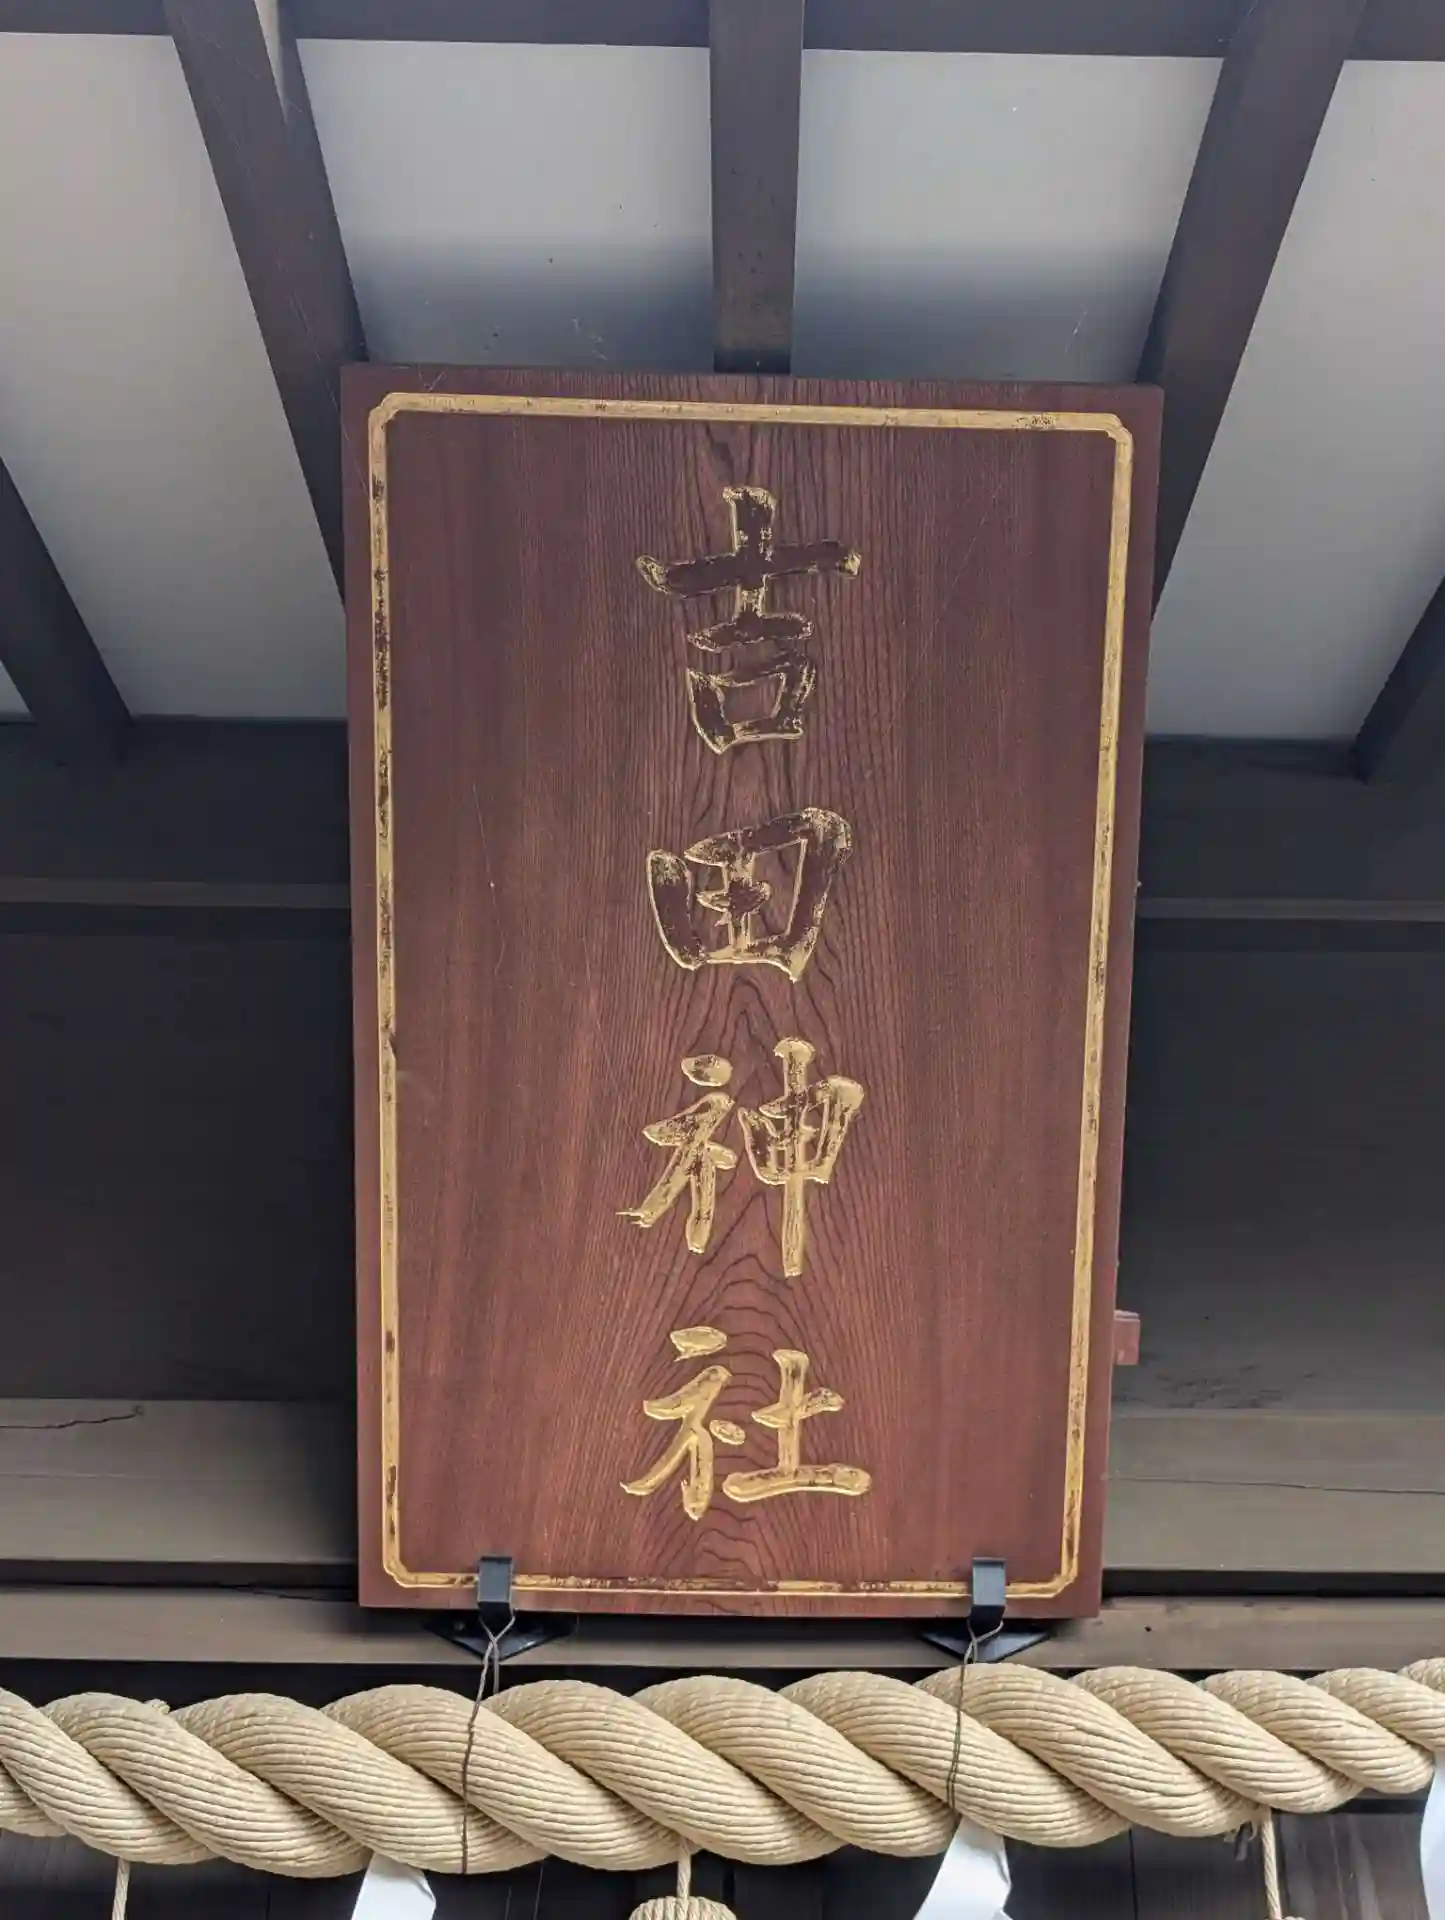 吉田神社